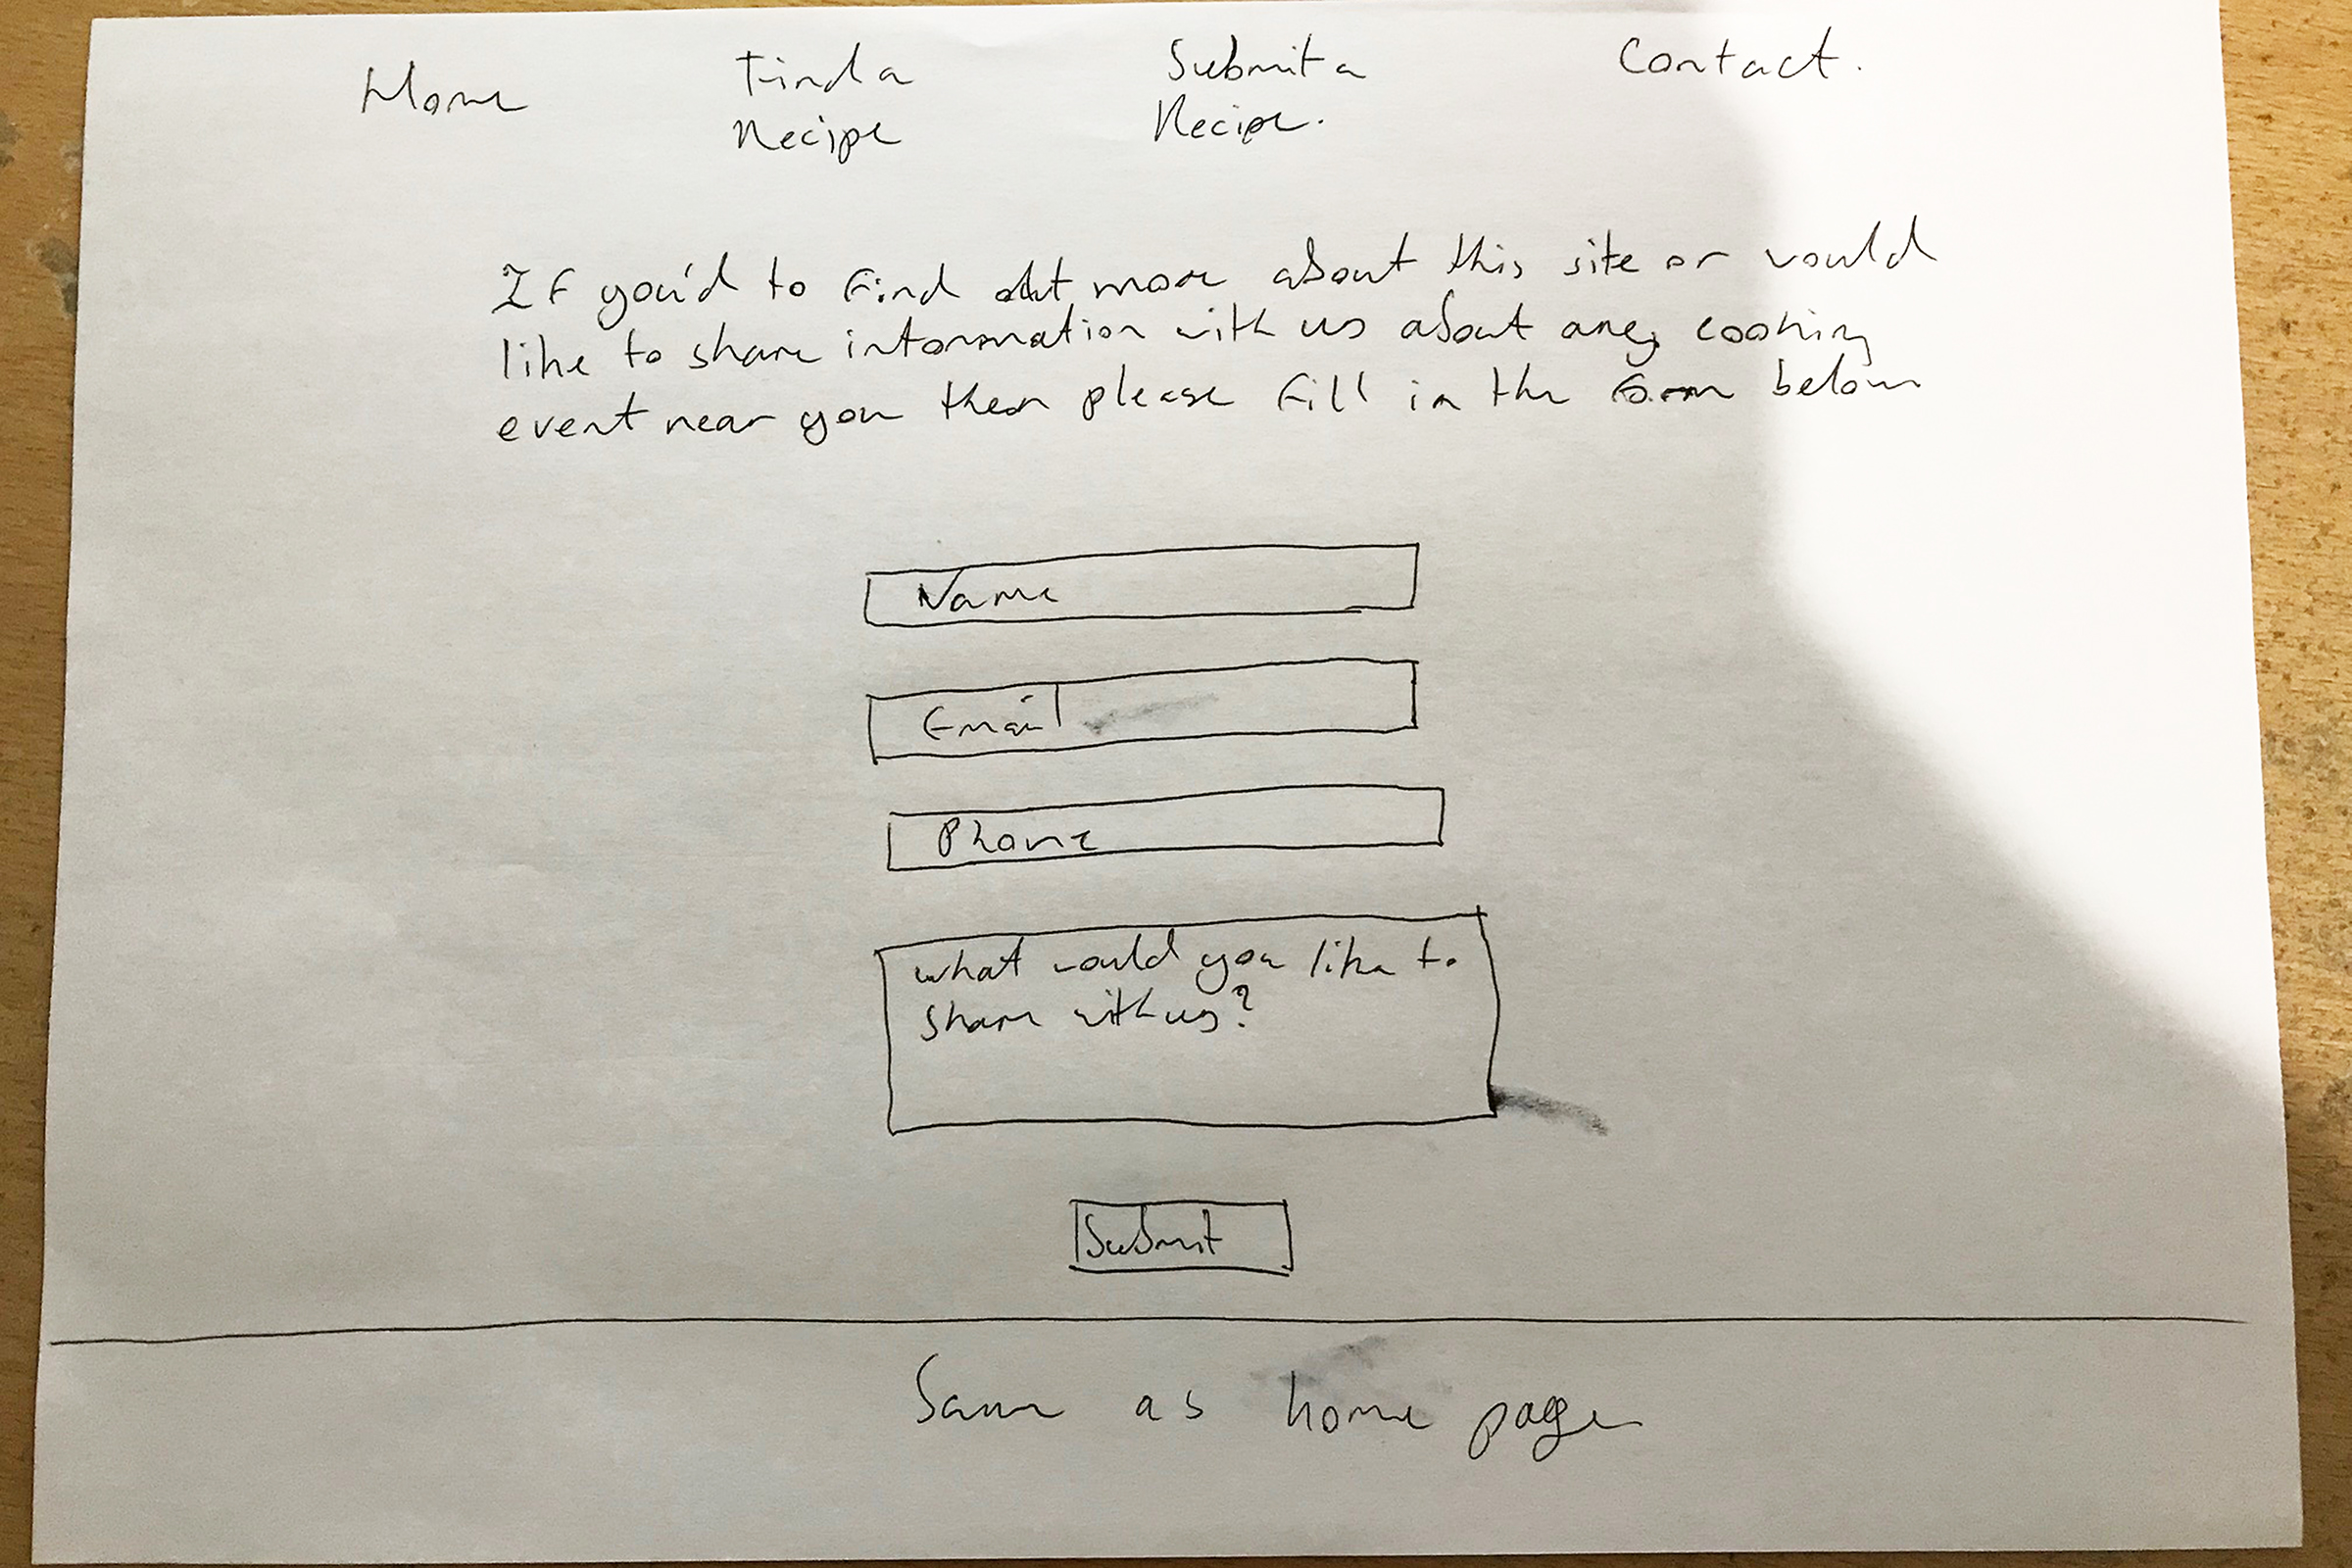 Home
Find a
Recipe
Submit a
Recipe.
Contact.
If you'd to find out more about this site or would
like to share information with us about any cooking
event near you then please fill in the form below
Name
Email
Phone
what would you like to
share with us?
Submit
Same as home page